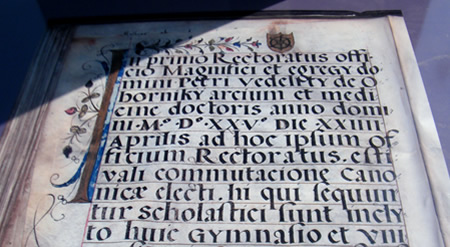 In primo Rectoratus offi
cio Magnifici et egregy do
mini Petri de O
borniky arcium et medi
cine doctoris anno domi
ni M° D° XXV° DIE XXIIII
Aprilis ad hoc ipsum of
ficium Rectoratus esti
vali commutacione cano
nicæ electi. hi qui sequun
tur scholastici sunt incly
to huic GYMNASIO et vni